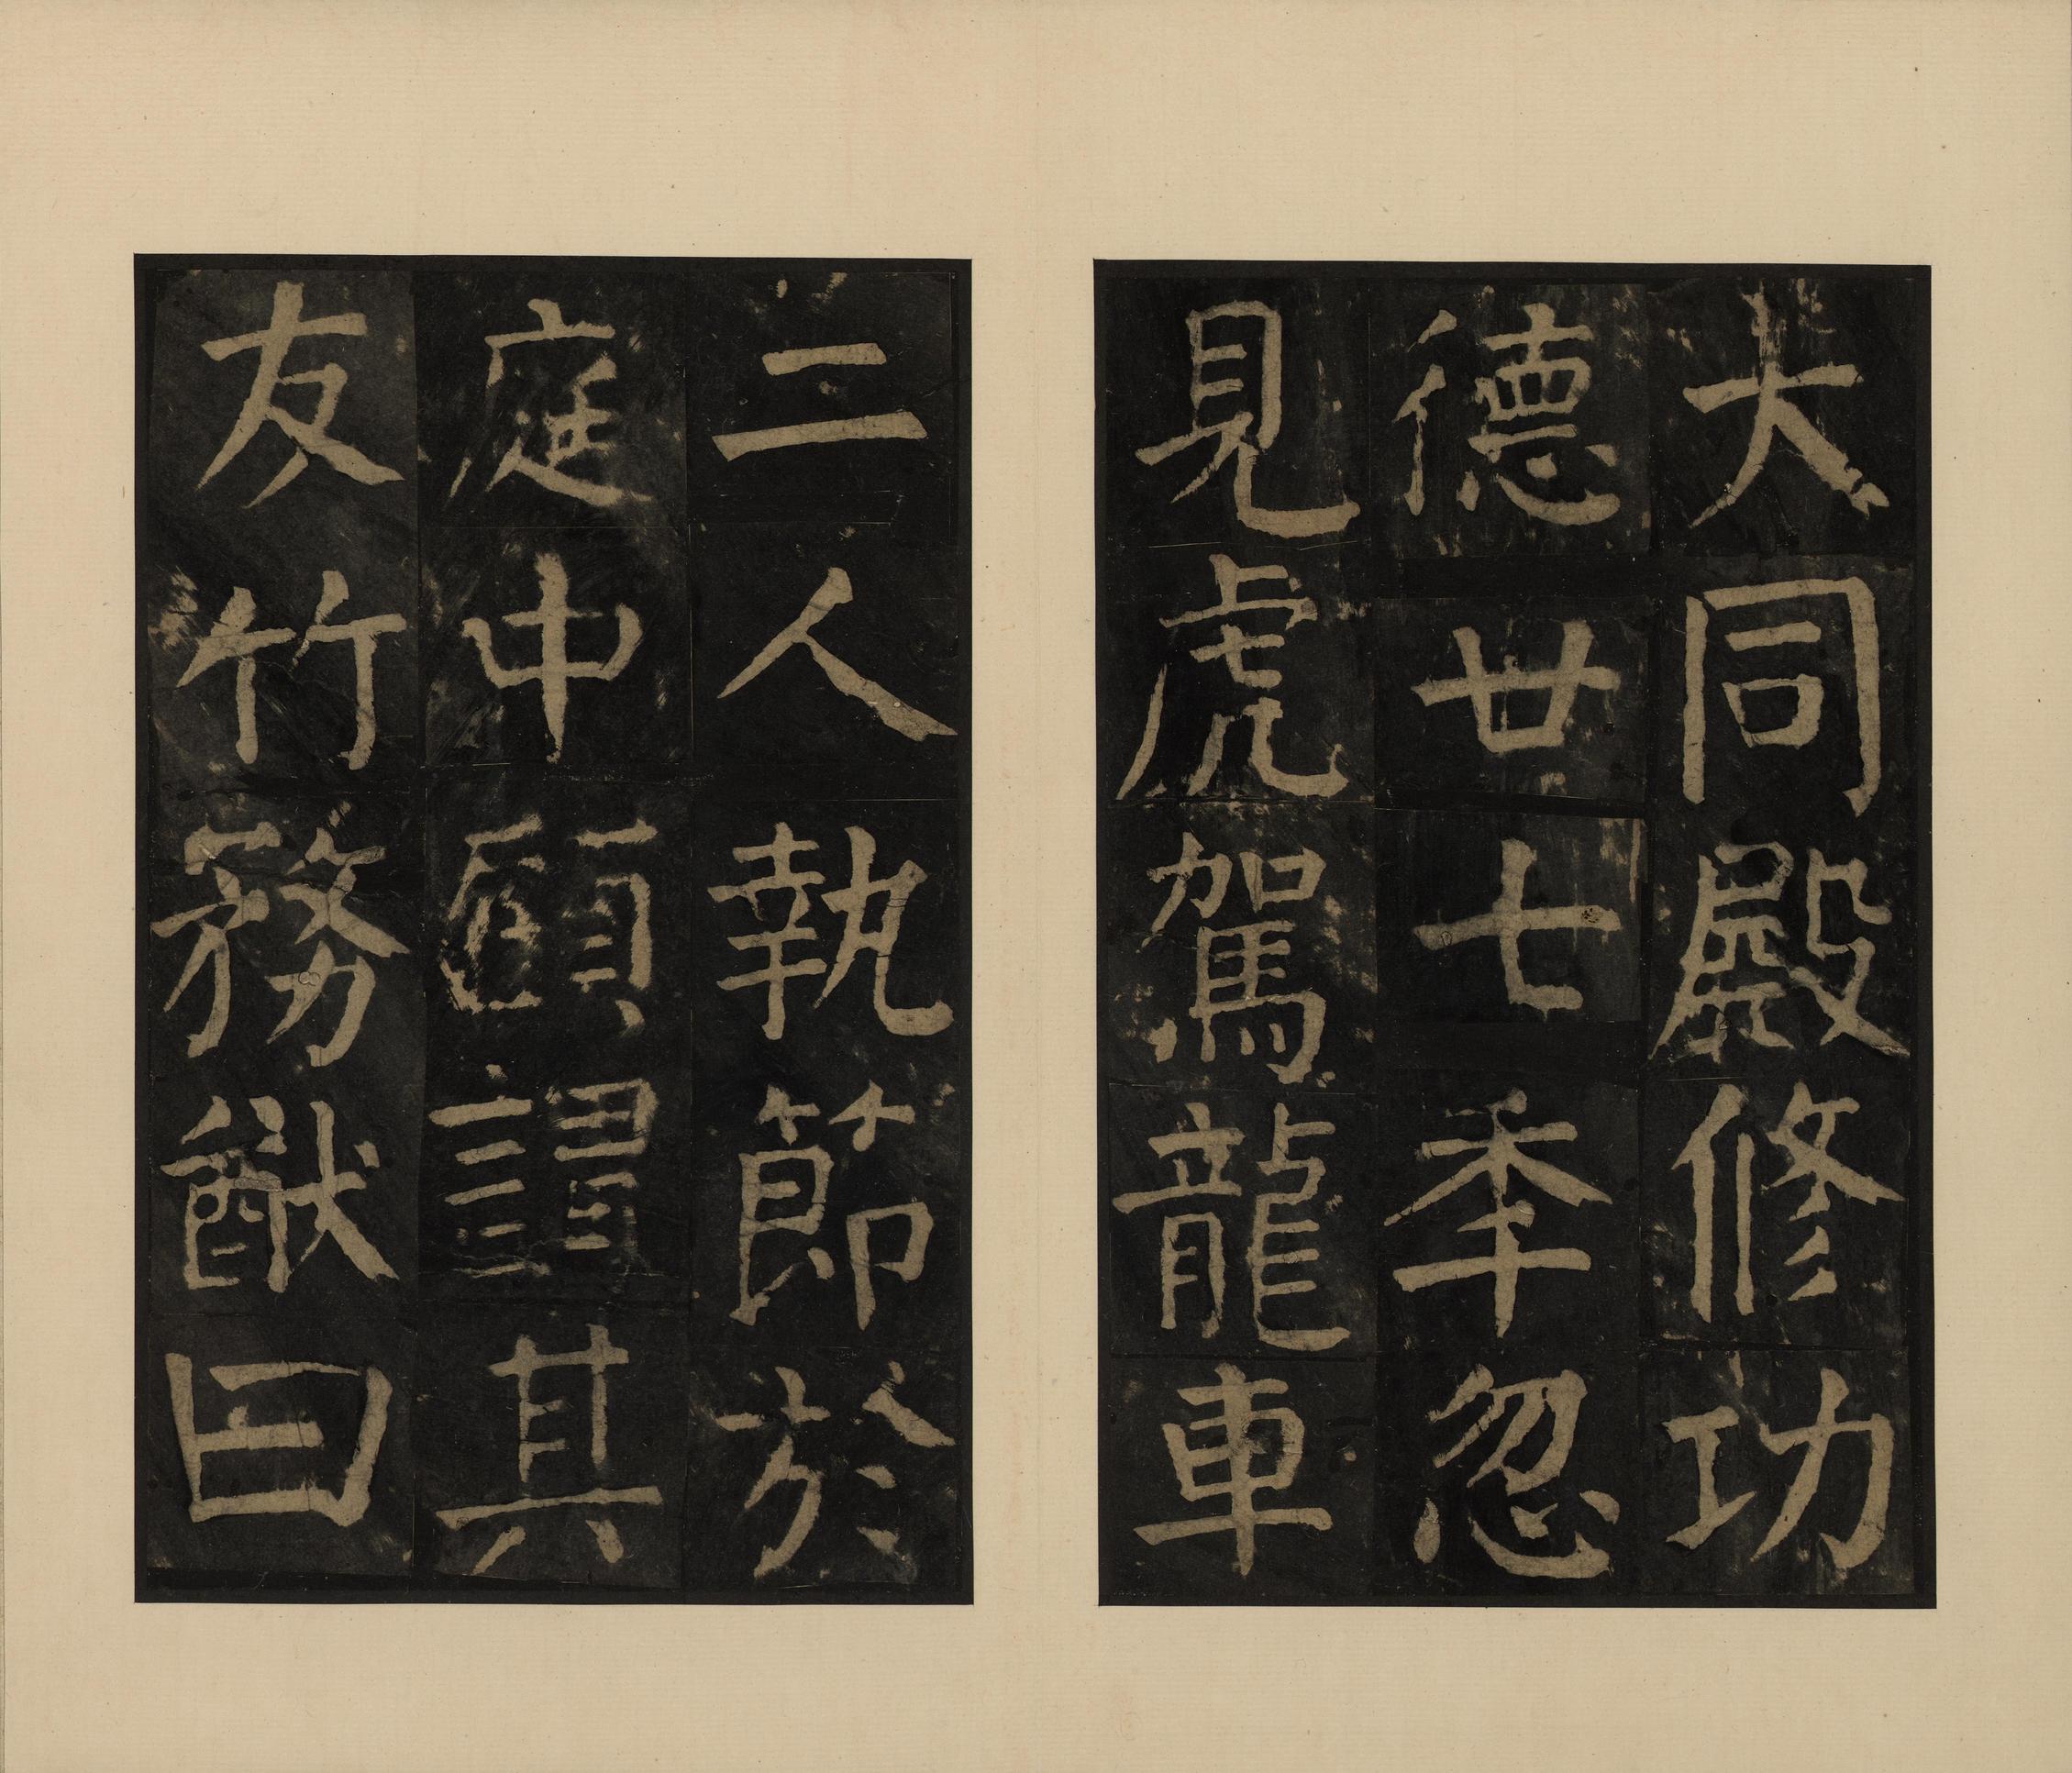 大同殿修功
德廿七秊忽
見虎駕龍車
二人執節於
庭中顧謂其
友竹務猷曰